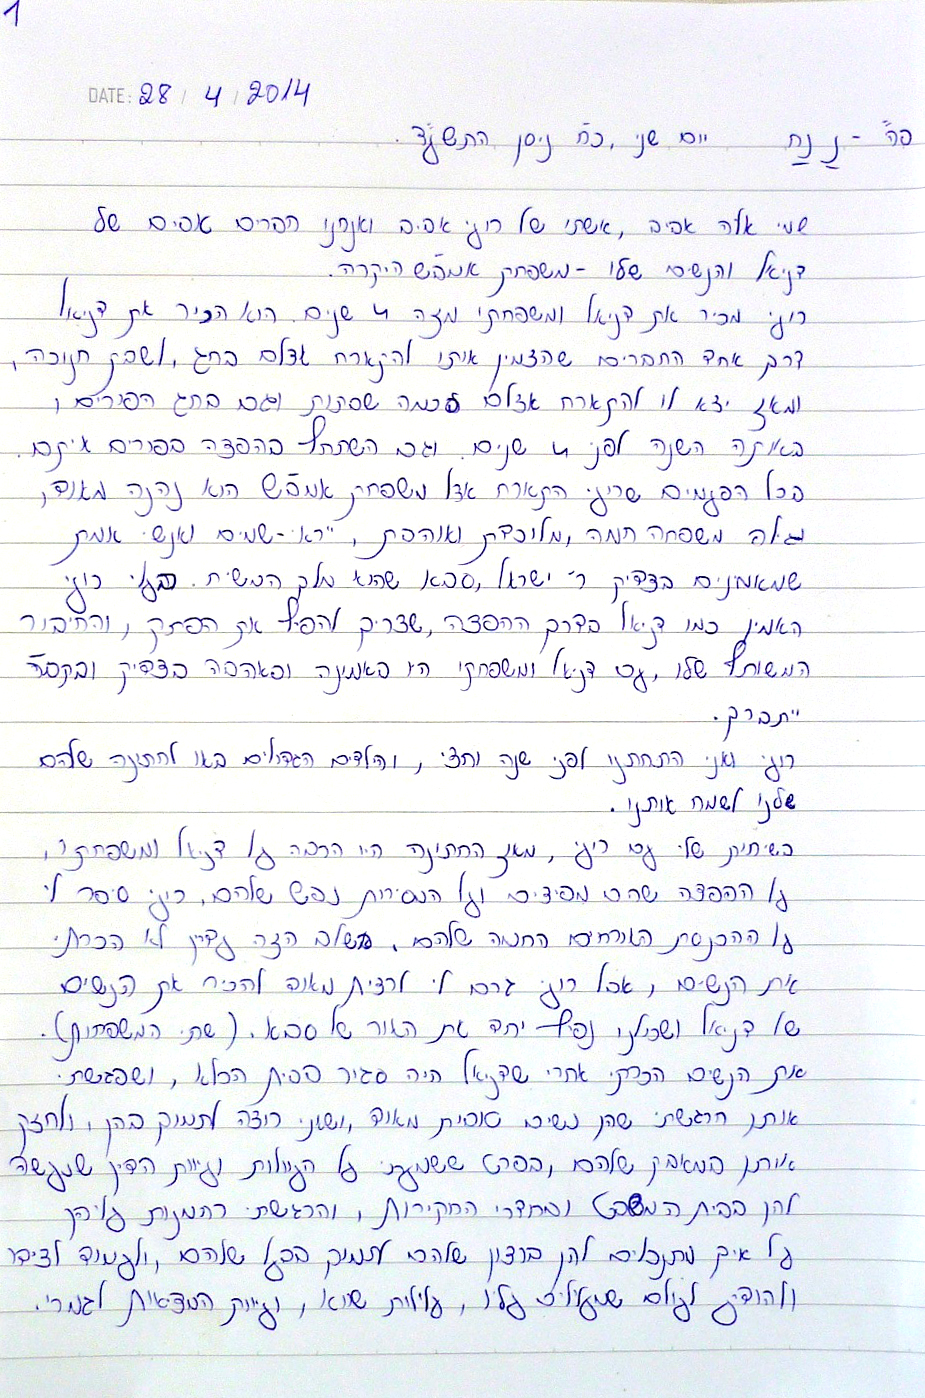 1
DATE: 28 / 4 / 2014
בה" - נ נח יום שני, כ"ח ניסן התשע"ד.
שמי אלה אביב, אשתו של רוגי אביב ואנחנו חברים טובים של
דניאל והנשים שלו - משפחת אמבש היקרה.
רוגי מכיר את דניאל ומשפחתו מזה 4 שנים. הוא הכיר את דניאל
דרך אחד החברים שהזמין איתו להתארח אצלם בחג, לשבת חנוכה,
ומאז יצא לו להתארח אצלם כמה שבתות וגם בחג הפורים,
באותה השנה לפני 4 שנים. וגם השתתף בהפצה בפורים איתם.
בכל הפעמים שרוגי התארח אצל משפחת אמבש הוא נהנה מאוד,
וגילה משפחה חמה, מלוכדת ואוהבת, יראי-שמים ואנשי אמת
שמאמינים בצדיק ר' ישראל, סבא שהוא מלך המשיח. בעלי רוגי
האמין כמו דניאל בדרך ההפצה, שצריך להפיץ את הפתק, והחיבור
המשותף שלו, עם דניאל ומשפחתו היו באמונה ובאהבה בצדיק ובקב"ה
יתברך.
רוגי ואני התחתנו לפני שנה וחצי, והילדים הגדולים באו לחתונה שלהם
שלנו לשמח אותנו.
בשיחות שלי עם רוגי, מאז החתונה היו הרבה על דניאל ומשפחתו,
על ההפצה שהם מפיצים ועל המסירות נפש שלהם. רוגי סיפר לי
על ההכנסת האורחים החמה שלהם. בשלב הזה עדיין לא הכרתי
את הנשים, אבל רוגי גרם לי לרצות מאוד להכיר את הנשים
של דניאל ושכולנו נפיץ יחד את האור של סבא. (שתי המשפחות).
את הנשים הכרתי אחרי שדניאל היה סגור בבית הכלא, ושפגשתי
אותן הרגשתי שהן נשים טובות מאוד, ושאני רוצה לתמוך בהן, ולחזק
אותן במאבק שלהם, בפרט ששמעתי על העוולות ועיוות הדין שנעשה
להן בבית המשפט ובחדרי החקירות, והרגשתי רחמנות עליהן
על איך מתנכלים להן ברצון שלהם לתמוך בבעל שלהם, ולעמוד לצידו
ולהודיע לעולם שהעלילו עליו, עלילות שווא, ועיוות המציאות לגמרי.